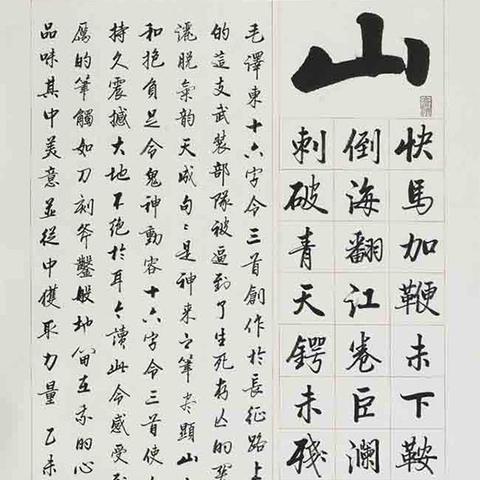 山
快馬加鞭未下鞍
倒海翻江卷巨瀾
刺破青天鍔未殘
毛澤東十六字令三首創作於長征路上
的這支武裝部隊被逼到了生死存亡的
灑脫氣韵天成句々是神來之筆盡顯山
和抱負足令鬼神動容十六字令三首使人
持久震撼大地不絕於耳今讀此令感受到
厲的筆觸如刀刻斧鑿般地留在我的心
品味其中美意並從中獲取力量乙未